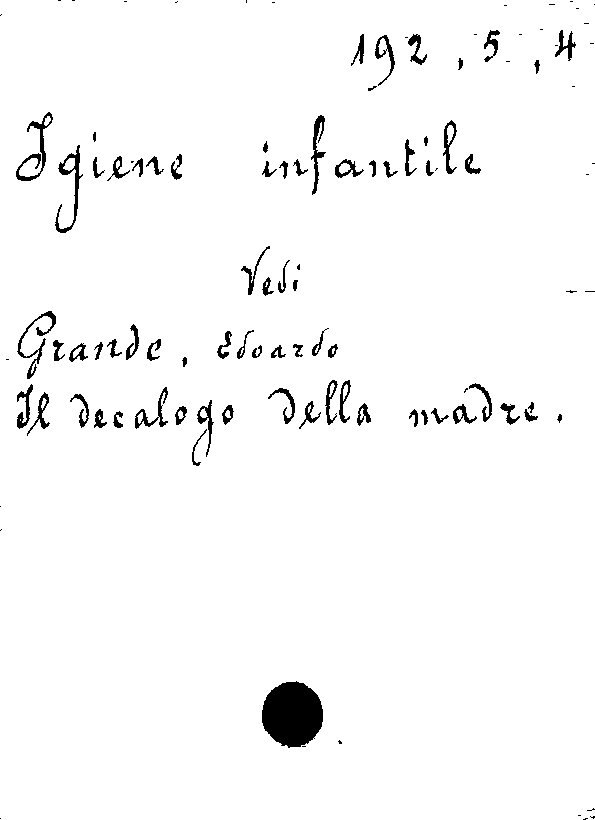 192, 5, 4
Igiene infantile
Vedi
Grande, Edoardo
Il decalogo della madre.